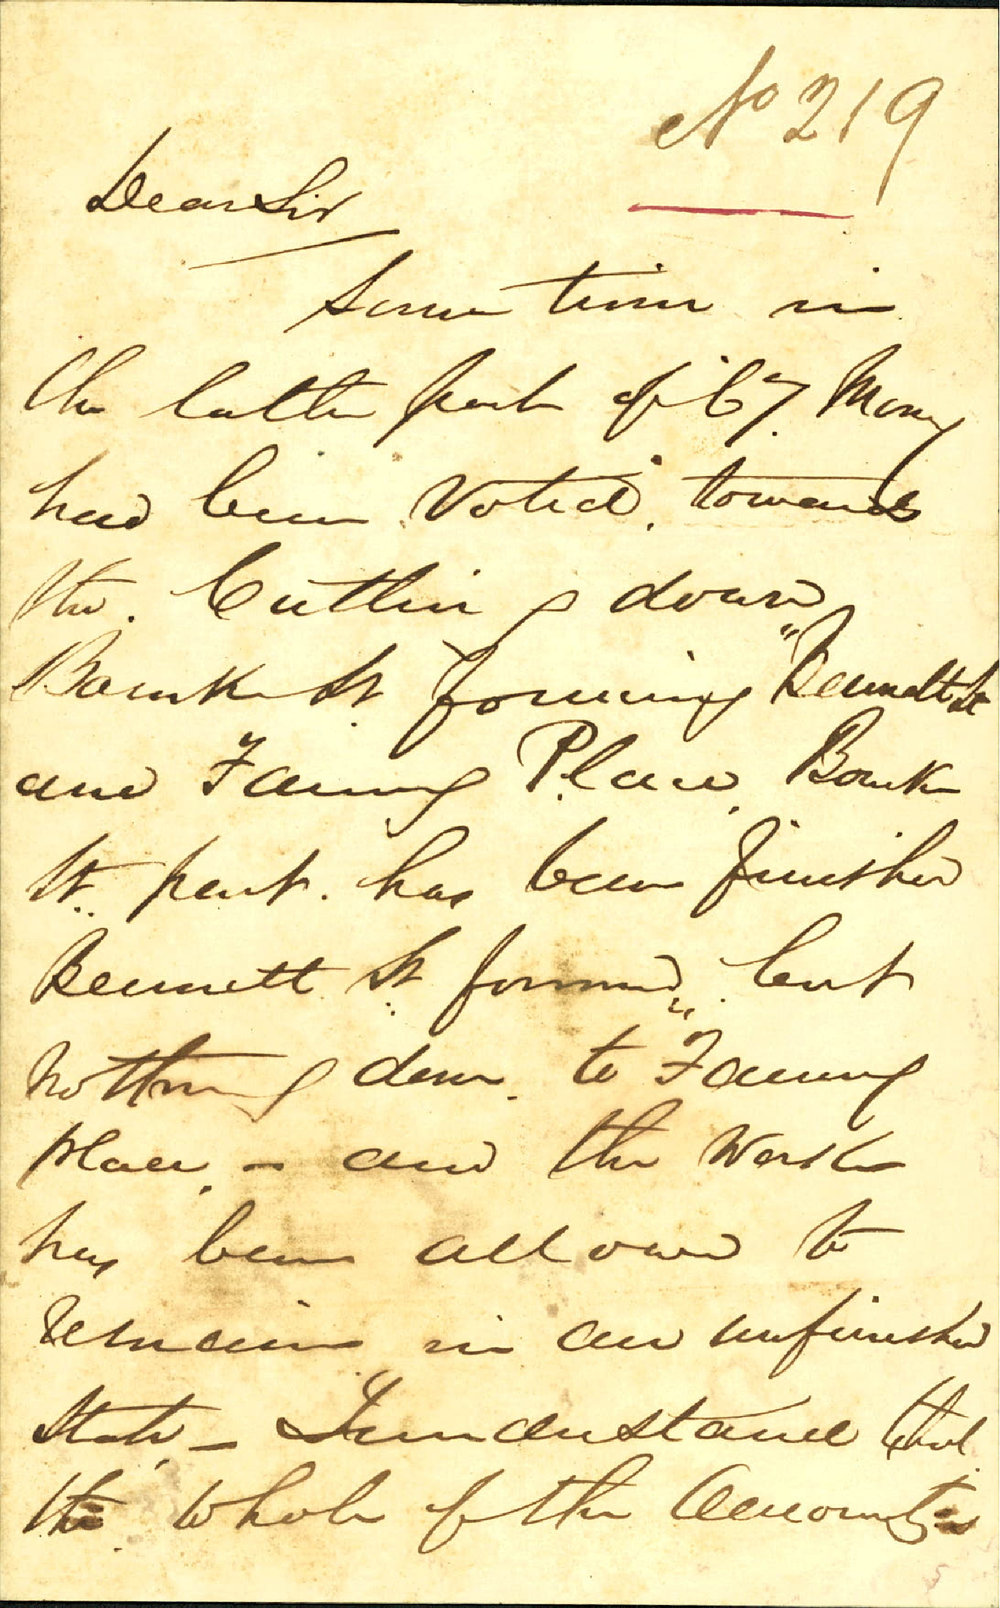 No 219
Dear Sir
Some time in
the latter part of '67. Money
had been Voted. towards
the. Cutting down
Bank St forming "Bennett St
and Fanny Place. Bank
St. part. has been finished
Bennett St formed", but
nothing done. to Fanny
place. - and the Work
has been allowed to
remain in an unfinished
State, - I understand that
the whole of the Accounts